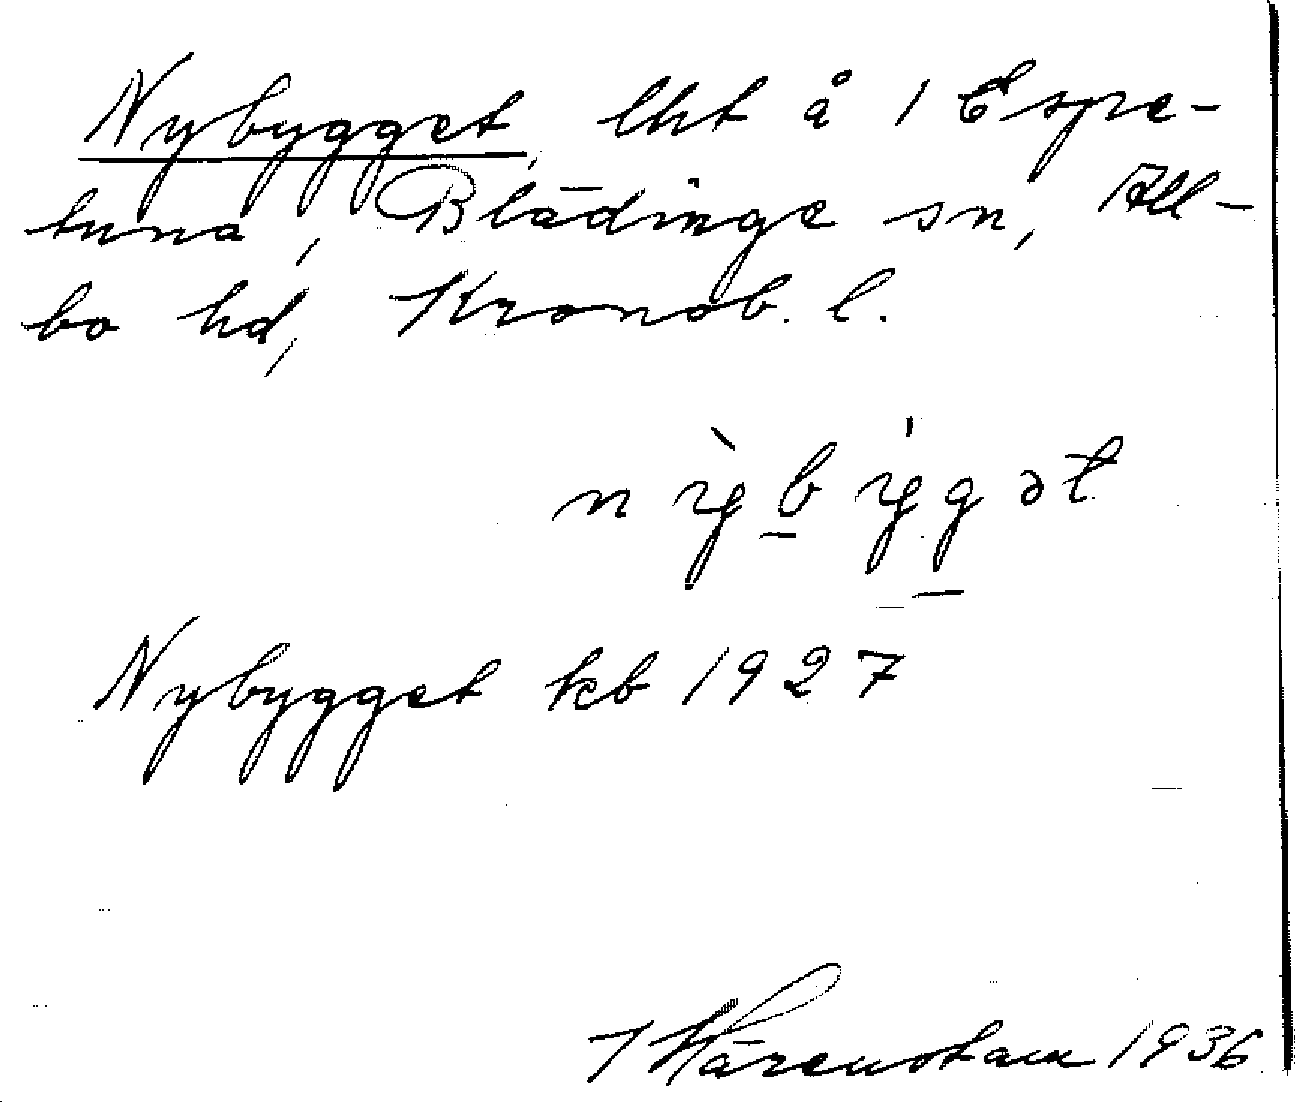 Nybygget, lht å 1 Espe-
tuna, Blädinge sn, All-
bo hd, Kronob. l.
nỳbýgət
Nybygget kb 1927
1936